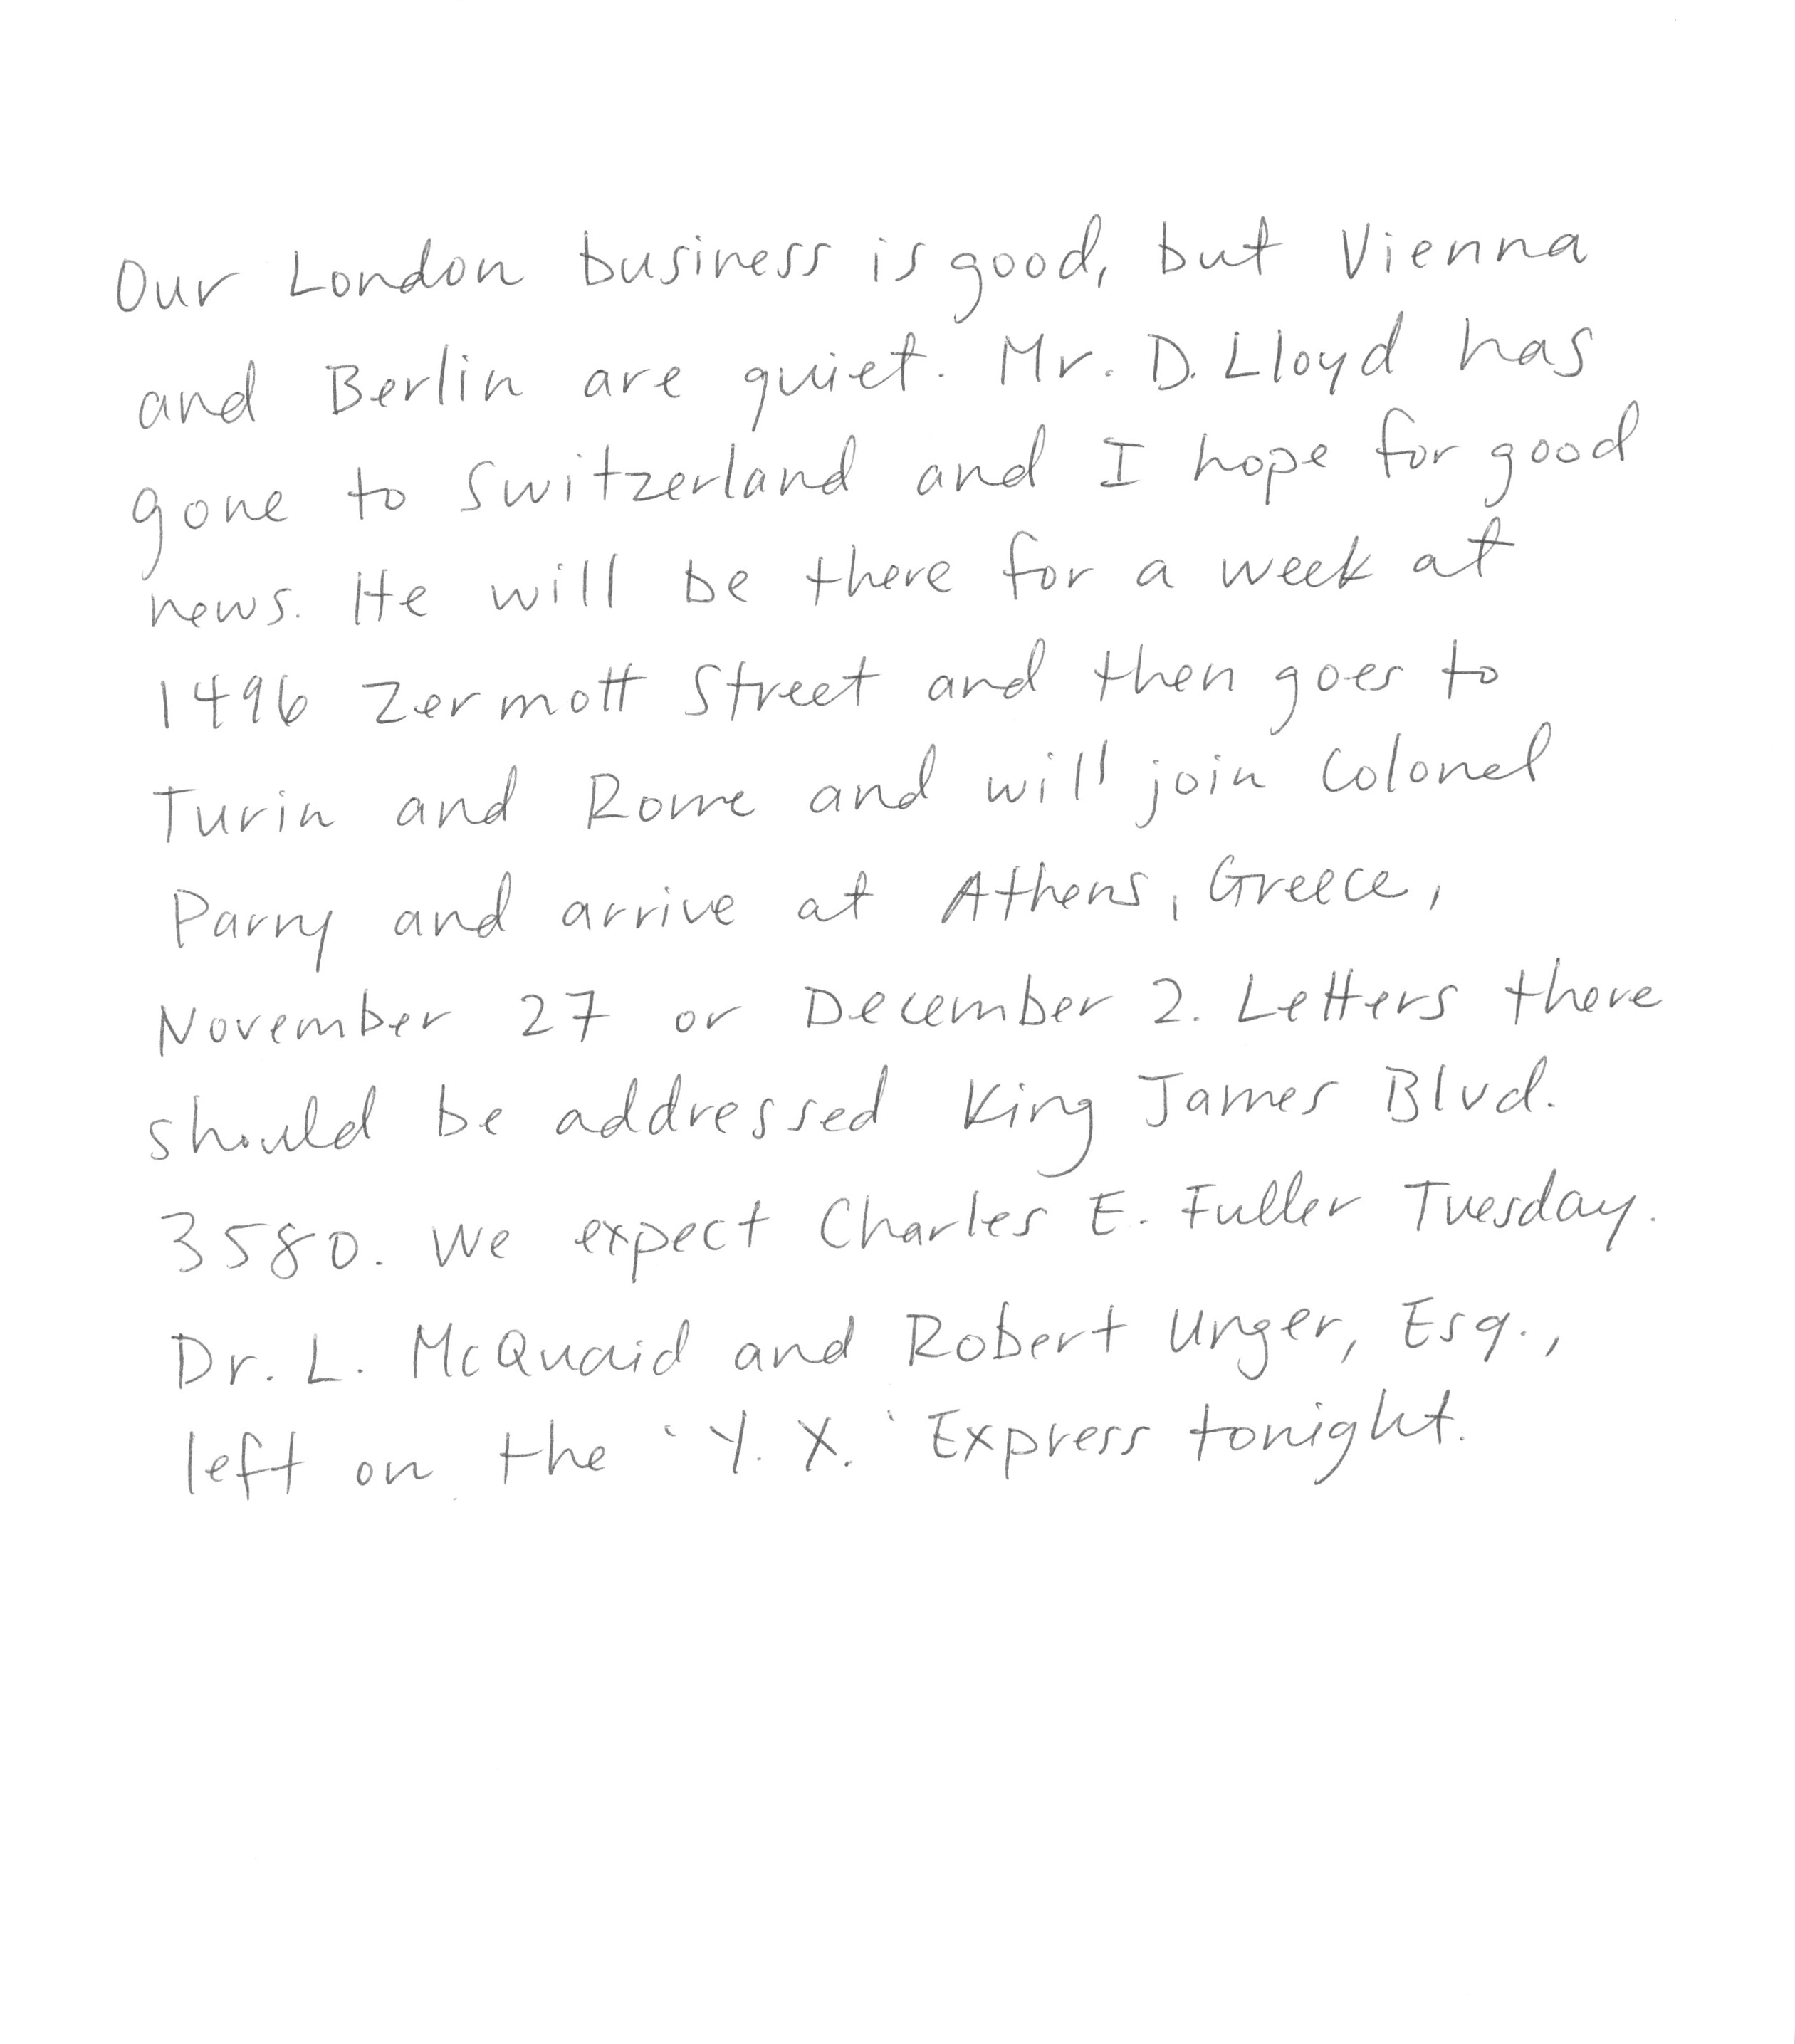 Our London business is good, but Vienna
and Berlin are quiet. Mr. D. Lloyd has
gone to Switzerland and I hope for good
news. He will be there for a week at
1496 Zermott Street and then goes to
Turin and Rome and will join Colonel
Parry and arrive at Athens, Greece,
November 27 or December 2. Letters there
should be addressed King James Blvd.
3580. We expect Charles E. Fuller Tuesday.
Dr. L. McQuaid and Robert Unger, Esq.,
left on the 'Y. X.' Express tonight.